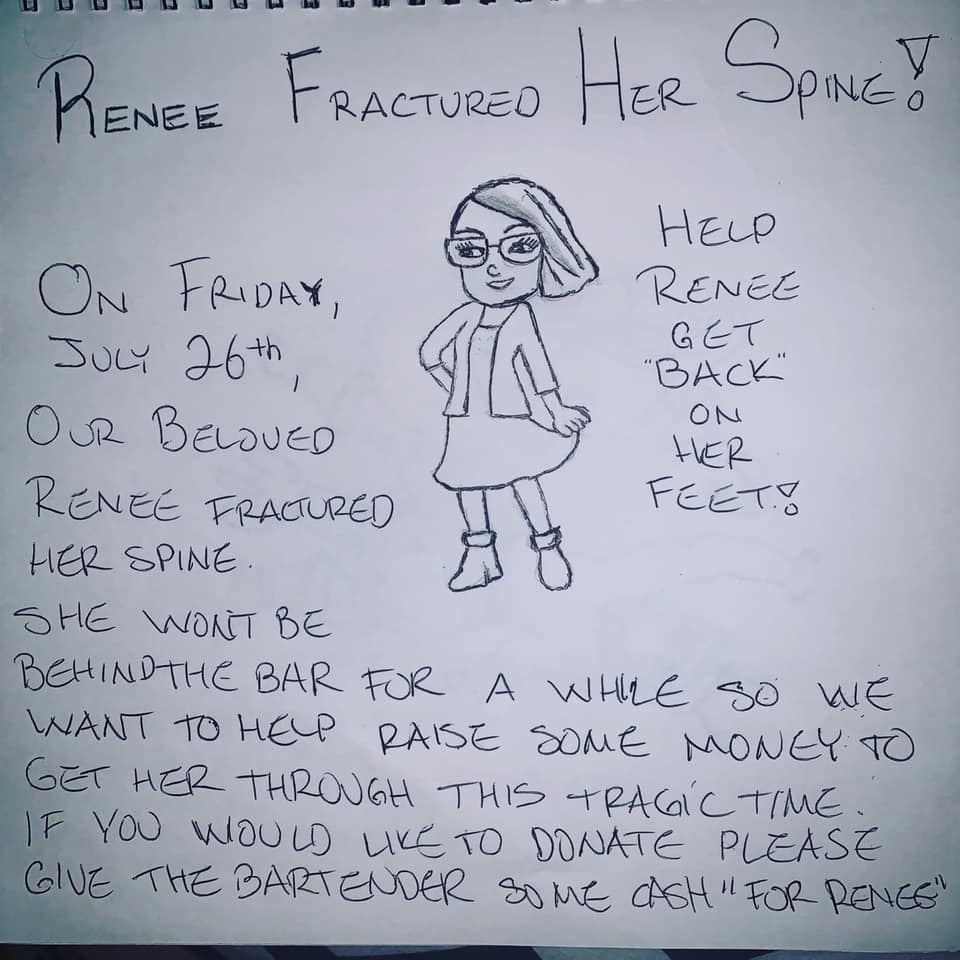 RENEE FRACTURED HER SPINE!
ON FRIDAY,
JULY 26th,
OUR BELOVED
RENEE FRACTURED
HER SPINE.
SHE WONT BE
BEHIND THE BAR FOR A WHILE SO WE
WANT TO HELP RAISE SOME MONEY TO
GET HER THROUGH THIS TRAGIC TIME.
IF YOU WOULD LIKE TO DONATE PLEASE
GIVE THE BARTENDER SOME CASH "FOR RENEE"
HELP
RENEE
GET
"BACK"
ON
HER
FEET!